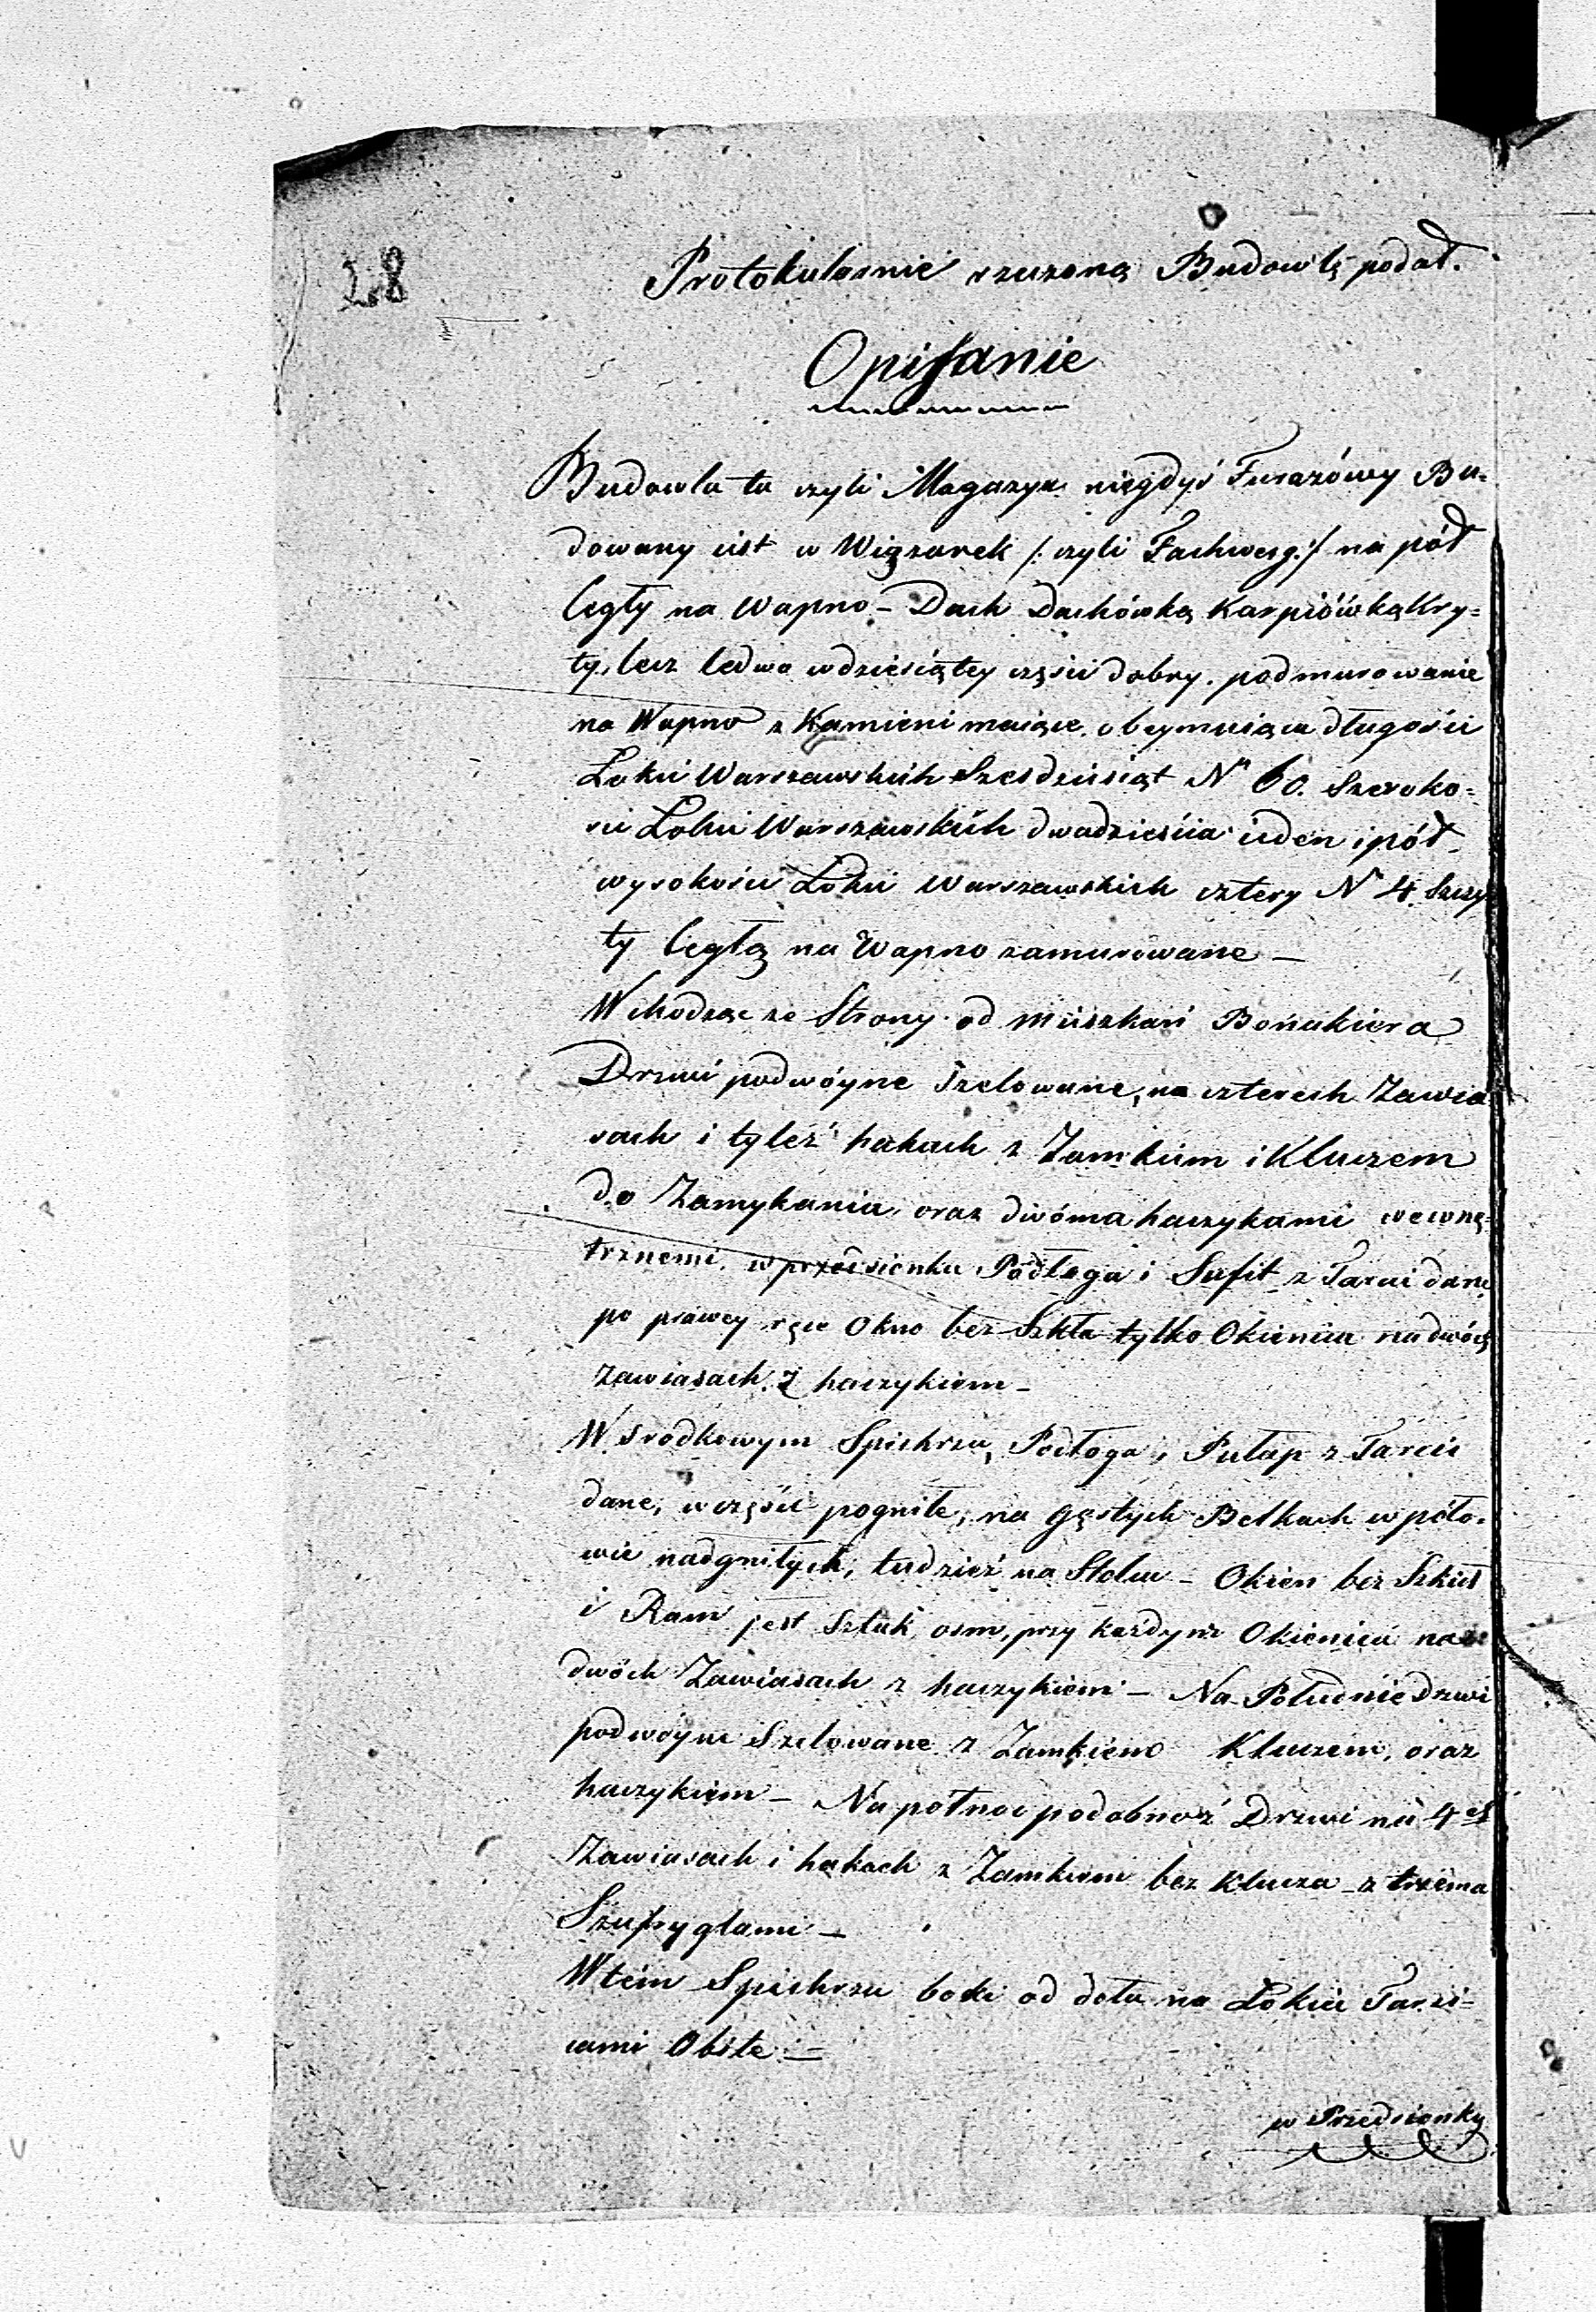 28
Protokularnie rzuconą Budowlę podał.
Opisanie
Budowla ta czyli Magazyn niegdyś Furażówy Bu-
dowany iest w Wiązarek /: czyli Fachwerg :/ na pół
Cegły na Wapno – Dach Dachówką Karpiówką Kry-
ty, lecz ledwo w dziesiątey części dobry. podmurowanie
na Wapno z Kamieni maiące. obeymuiąca długości
Łokci Warszawskich Szesdziesiąt Nº 60. Szeroko-
ści Łokci Warszawskich dwadzieścia ieden i pół.
wysokości Łokci Warszawskich cztery Nº 4. Szczy-
ty Cegłą na Wapno zamurowane –
Wchodząc ze Strony od mieszkań Bońakiera
Drzwi podwóyne Szelowane, na czterech Zawia
sach i tyleż hakach z Zamkiem i Kluczem
do Zamykania, oraz dwóma haczykami wewnę-
trznemi. w przedsionku Podłoga i Sufit z Tarcic dane
po prawey ręce Okno bez Szkła tylko Okienica na dwóch
Zawiasach z haczykiem –
W srodkowym Spichrzu, Podłoga, Pułap z Tarcic
dane, w części pogniłe, na gęstych Belkach w poło-
wie nadgniłych, tudzież na Stolcu – Okien bez Szkieł
i Ram jest Sztuk osm, przy każdym Okienica na
dwóch Zawiasach z haczykiem – Na Południe Drzwi
podwóyne Szelowane z Zamkiem Kluczem, oraz
haczykiem – Na północ podobneż Drzwi na 4ch
Zawiasach i hakach z Zamkiem bez Klucza – z trzema
Szufryglami –
W tém Spichrzu boki od dołu na Łokieć Tarci-
cami Obite –
w Przedsionku